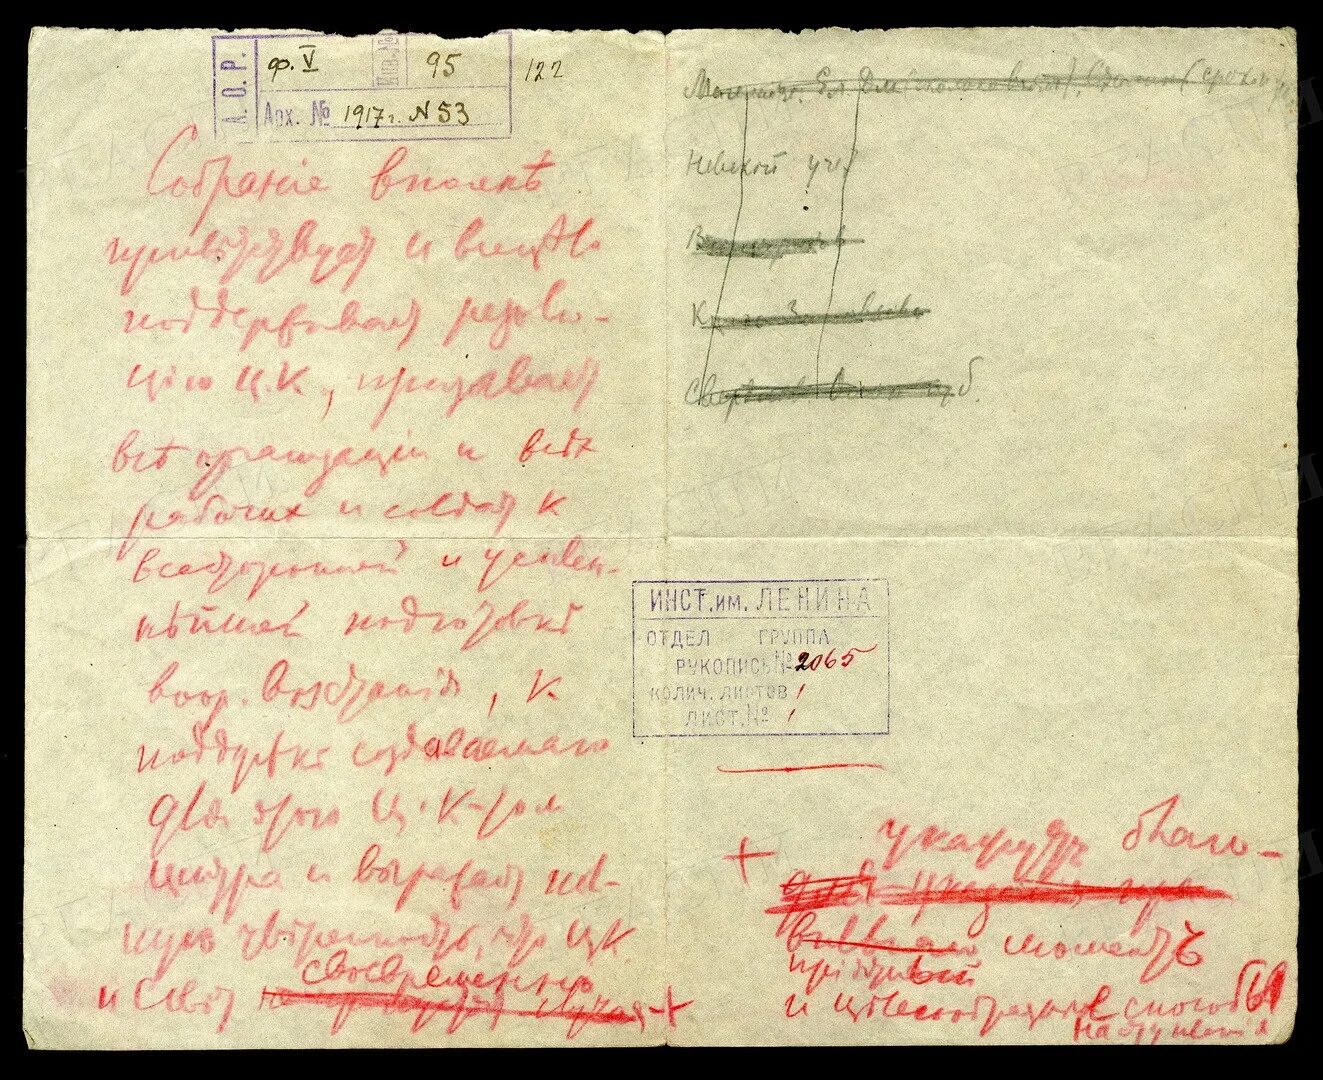 Л.О.Р.
ф. V
Инв.№
95
122
Арх. № 1917 г. N 53
Собрание вполнѣ
привѣтствует и всецѣло
поддерживает резолю-
цію Ц.К., призывает
всѣ организаціи и всѣх
рабочих и солдат к
всесторонней и усилен-
нѣйшей подготовкѣ
воор. возстанія, к
поддержкѣ создаваемаго
для этого Ц. К-том
центра и выражает пол-
ную увѣренность, что Ц.К.
своевременно
и Совѣт +
Невской
ИНСТ. им. ЛЕНИНА
ОТДЕЛ ГРУППА
РУКОПИСЬ № 2065
КОЛИЧ. ЛИСТОВ 1
ЛИСТ. № 1
+ укажут благо-
пріятный
момент
и цѣлесообразные способы
наступленія